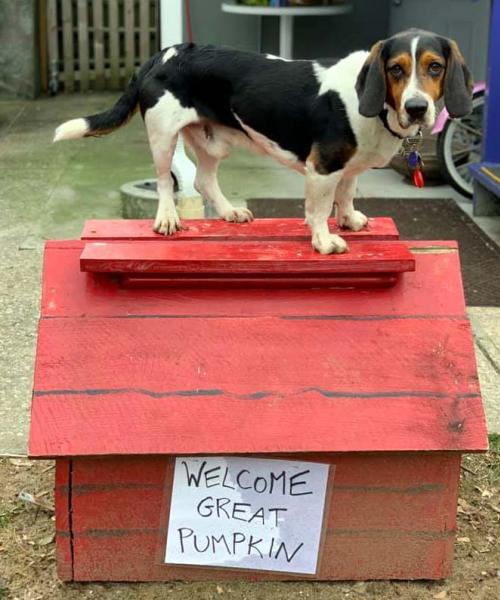 WELCOME
GREAT
PUMPKIN